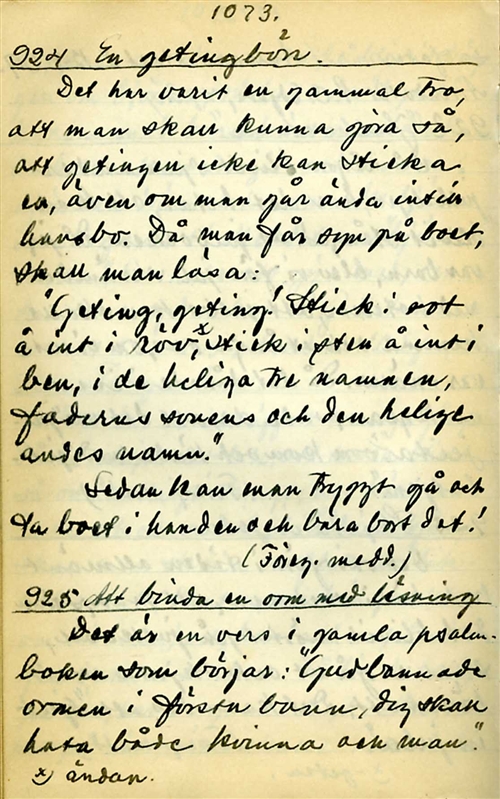 1073.
924 En getingbön.
Det har varit en gammal tro,
att man skall kunna göra så,
att getingen icke kan sticka
en, även om man går ända intill
hans bo. Då man får syn på boet,
skall man läsa:
"Geting, geting! Stick i rot
å int i röv,x) stick i sten å int i
ben, i de heliga tre namnen,
faderns sonens och den helige
andes namn."
Sedan kan man tryggt gå och
ta boet i handen och bära bort det!
(Föreg. medd.)
925 Att binda en orm med läsning
Det är en vers i gamla psalm-
boken som börjar: "Gud bannade
ormen i första bann, dig skall
hata både kvinna och man".
x) ändan.